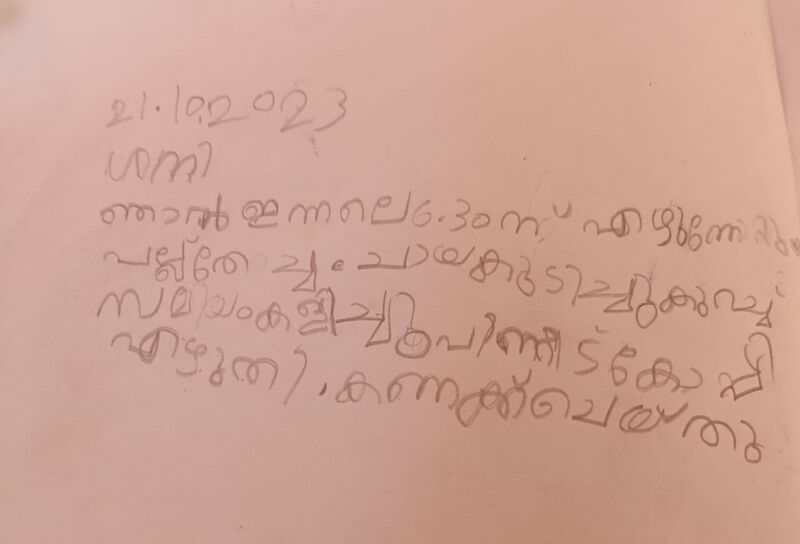 21.10.2023
ശനി
ഞാൻ ഇന്നലെ 6.30ന് എഴുന്നേറ്റു
പല്ല്തേച്ചു. ചായകുടിച്ചുകുറച്ച്
സമയംകളിച്ചുപിന്നീട്കോപ്പി
എഴുതി. കണക്ക്ചെയ്തു